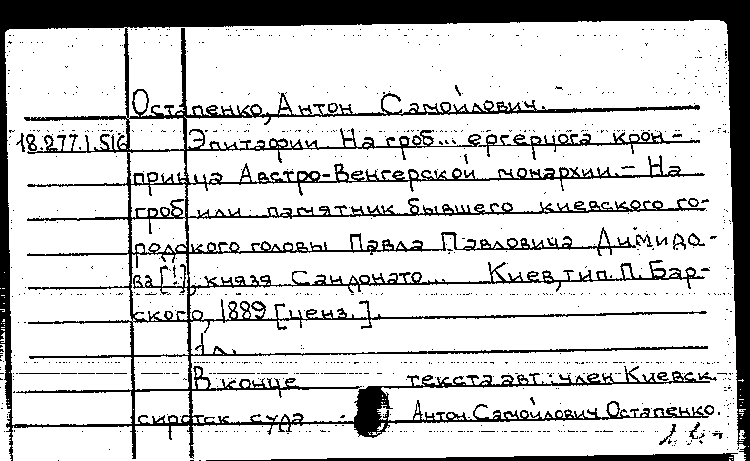 Остапенко, Антон Самойлович.
18.277.1.516 Эпитафии На гроб... ергерцога крон-
принца Австро-Венгерской монархии. - На
гроб или памятник бывшего киевского го-
родского головы Павла Павловича Димидо-
ва [!], князя Сандонато... Киев, тип. П. Бар-
ского, 1889 [ценз.].
1 л.
В конце текста авт.: член Киевск.
сиротск суда Антон Самойлович Остапенко.